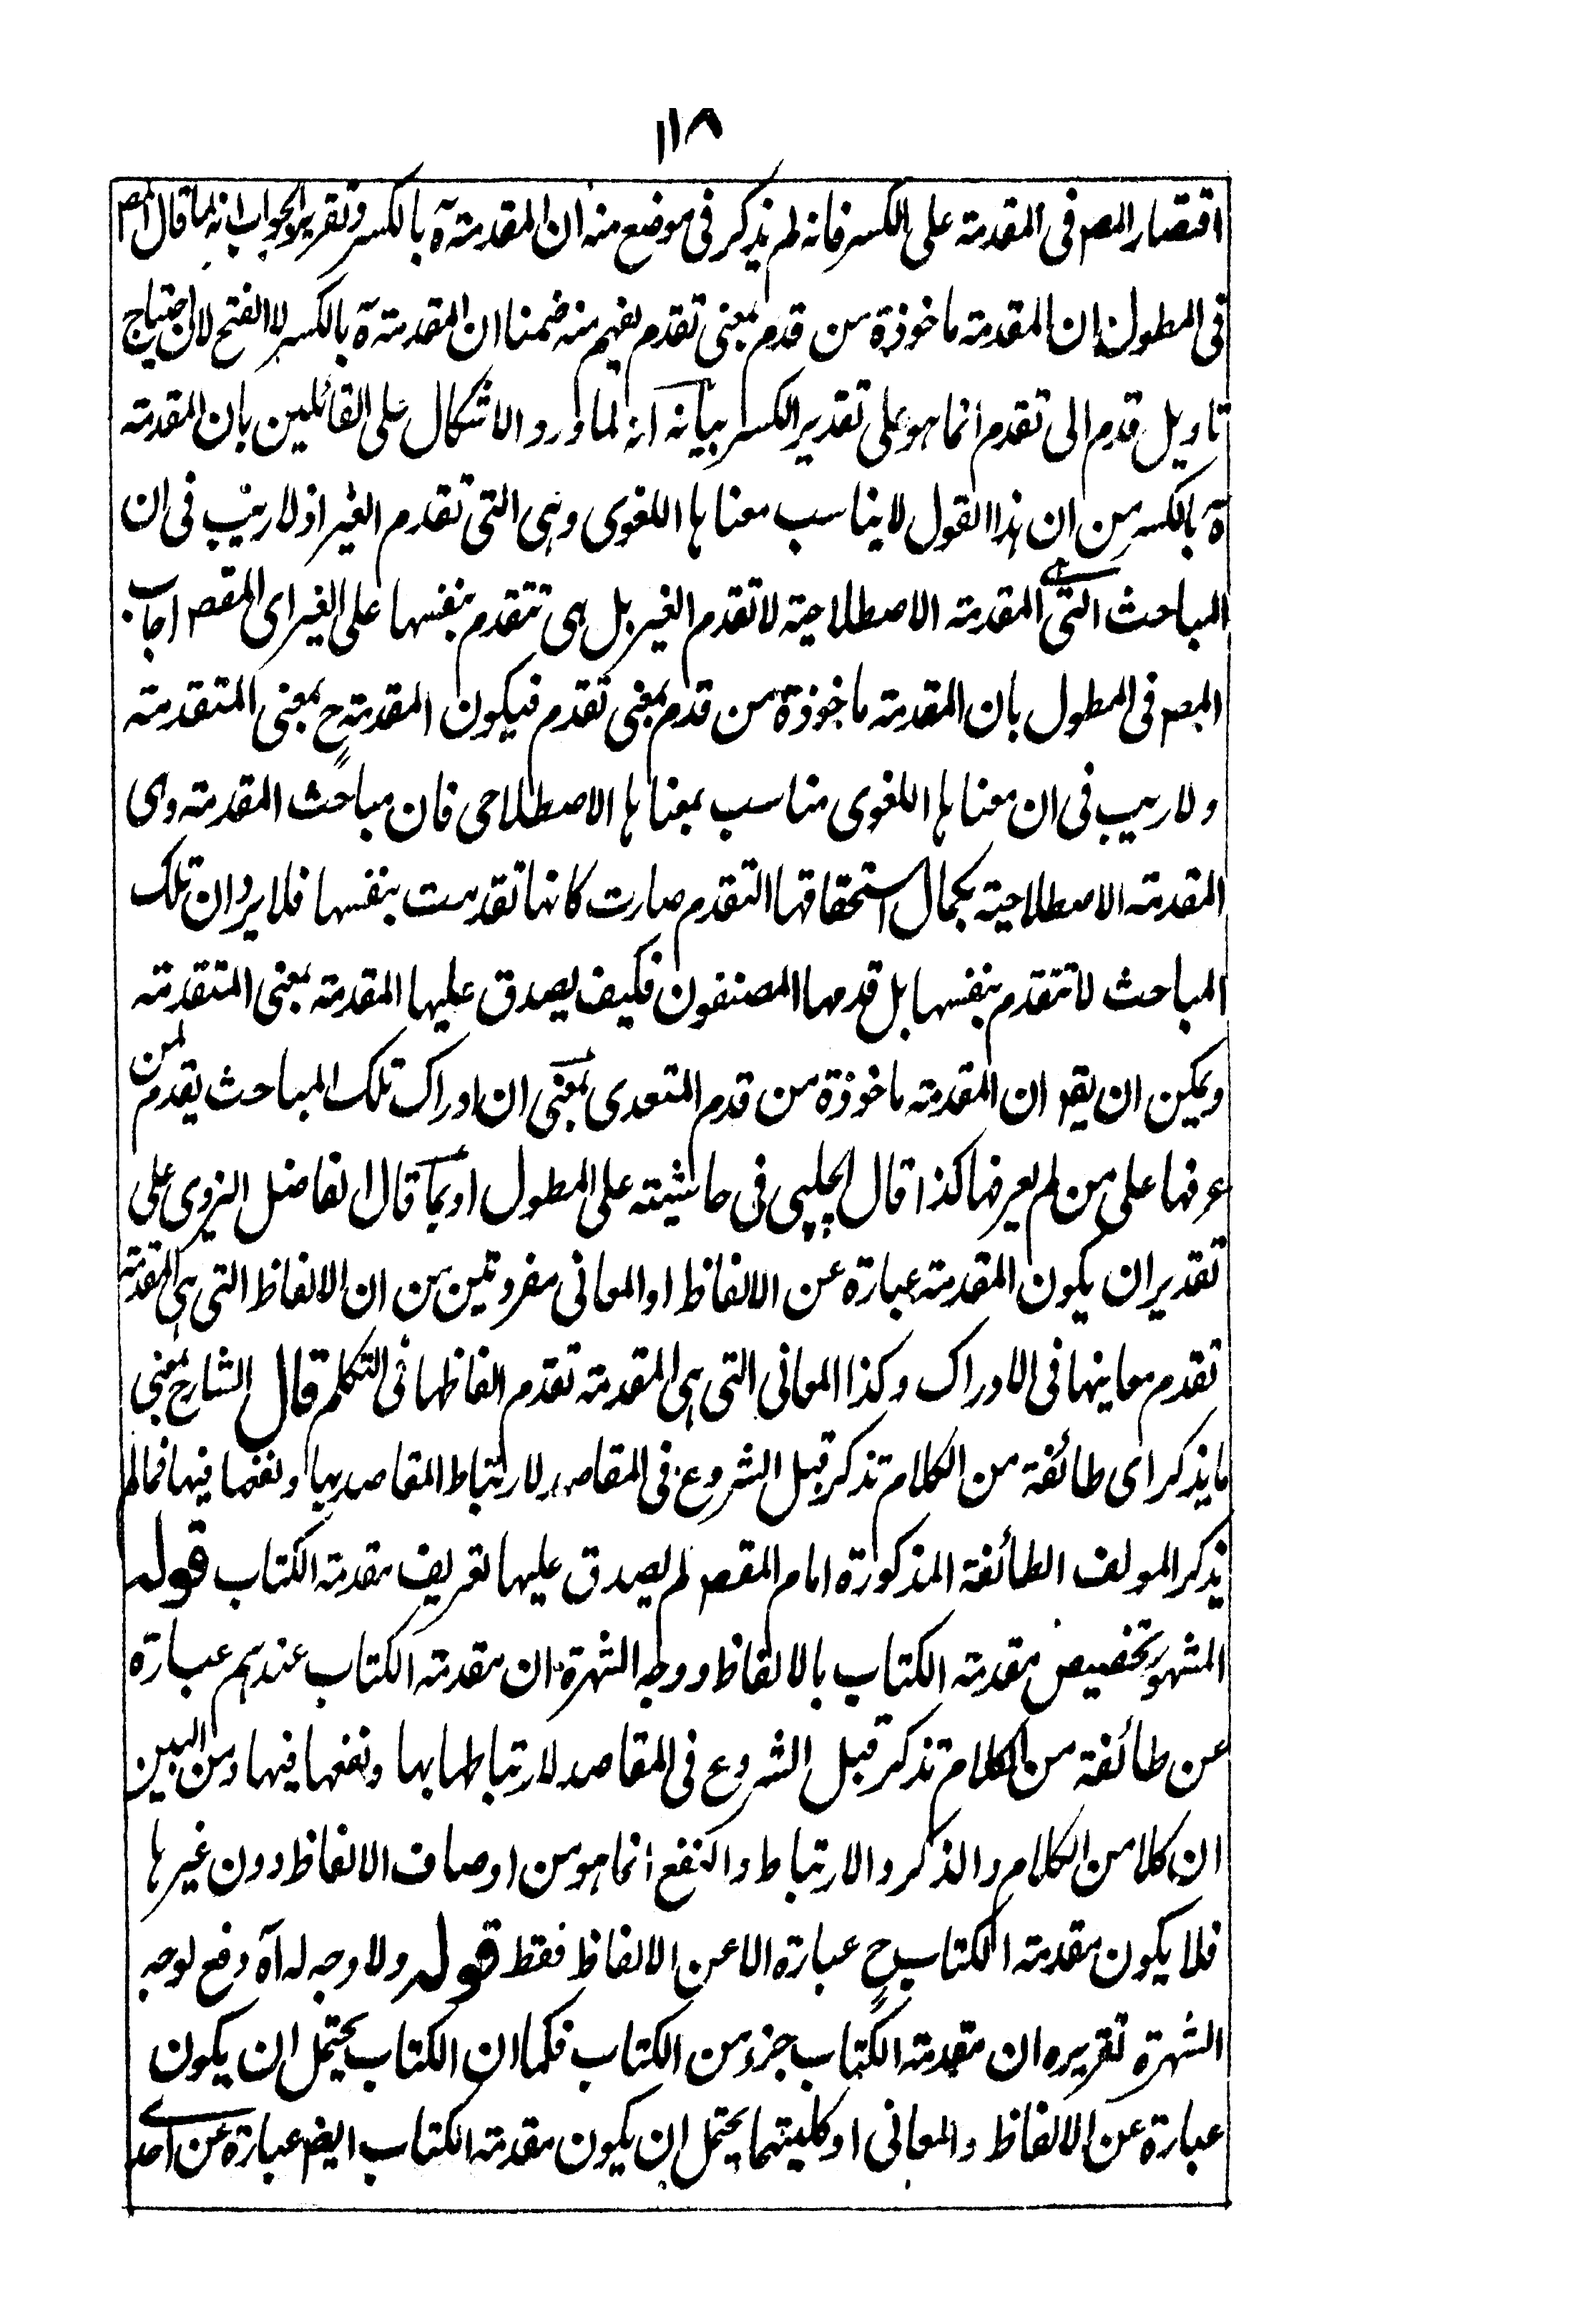 ١١٨
اقتصار المص فى المقدمة على الكسر فانه لم يذكر فى موضع منه ان المقدمة آه بالكسر وتقرير الجواب انه لما قال المص
فى المطول ان المقدمة ماخوذة من قدم بمعنى تقدم يفهم منه ضمنا ان المقدمة آه بالكسر لا الفتح لان احتياج
تاويل قدم الى تقدم انما هو على تقدير الكسر بيانه انه لما ورد الاشكال على القائلين بان المقدمة
آه بالكسر من ان هذا القول لا يناسب معناها اللغوى وهى التى تقدم الغير اذ لا ريب فى ان
المباحث التى هى المقدمة الاصطلاحية لا تقدم الغير بل هى تتقدم بنفسها على الغير اى المقص اجاب
المص فى المطول بان المقدمة ماخوذة من قدم بمعنى تقدم فيكون المقدمة ح بمعنى المتقدمة
ولا ريب فى ان معناها اللغوى مناسب بمعناها الاصطلاحى فان مباحث المقدمة وهى
المقدمة الاصطلاحية بكمال استحقاقها التقدم صارت كانها تقدمت بنفسها فلا يرد ان تلك
المباحث لا تتقدم بنفسها بل قدمها المصنفون فكيف يصدق عليها المقدمة بمعنى المتقدمة
ويمكن ان يقو ان المقدمة ماخوذة من قدم المتعدى بمعنى ان ادراك تلك المباحث يقدم لمن
عرفها على من لم يعرفها كذا قال الچلپى فى حاشيته على المطول او بما قال الفاضل اليزدى على
تقدير ان يكون المقدمة عبارة عن الالفاظ او المعانى مفردتين من ان الالفاظ التى هى المقدمة
تقدم معاينها فى الادراك وكذا المعانى التى هى المقدمة تقدم الفاظها فى التكلم قال الشارح بمعنى
ما يذكر اى طائفة من الكلام تذكر قبل الشروع فى المقاصد لارتباط المقاصد بها ونفعها فيها فما لم
يذكر المولف الطائفة المذكورة امام المقص لم يصدق عليها تعريف مقدمة الكتاب قوله
المشهور تخصيص مقدمة الكتاب بالالفاظ ووجه الشهرة ان مقدمة الكتاب عندهم عبارة
عن طائفة من الكلام تذكر قبل الشروع فى المقاصد لارتباطها بها ونفعها فيها ومن البين
ان كلا من الكلام والذكر والارتباط والنفع انما هو من اوصاف الالفاظ دون غيرها
فلا يكون مقدمة الكتاب ح عبارة الا عن الالفاظ فقط قوله ولا وجه له آه دفع لوجه
الشهرة تقريره ان مقدمة الكتاب جزء من الكتاب فكما ان الكتاب يحتمل ان يكون
عبارة عن الالفاظ والمعانى او كليتهما يحتمل ان يكون مقدمة الكتاب ايضا عبارة عن احدى